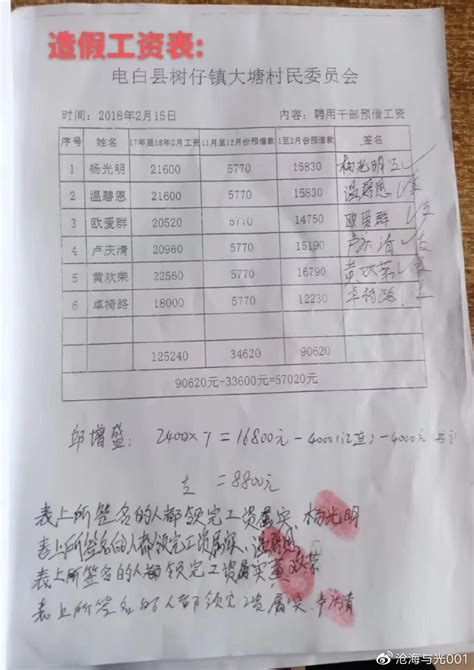 造假工资表:
电白县树仔镇大塘村民委员会
时间：2018年2月15日 内容：聘用干部预借工资
序号 姓名 17年至18年2月工资 11月至12月份预借款 1至2月份预借 签名
1 杨光明 21600 5770 15830 杨光明
2 温碧恩 21600 5770 15830 温碧恩
3 欧爱群 20520 5770 14750 欧爱群
4 卢庆清 20960 5770 15190 卢庆清
5 黄欢荣 22560 5770 16790 黄欢荣
6 卓裿路 18000 5770 12230 卓裿路
125240 34620 90620
90620元-33600元=57020元
邱增盛: 2400×7=16800元-4000(过直)-4000元
=8800元
表上所签名的人都领完工资属实、杨光明
表上所签名的人都领完工资属实、温碧恩
表上所签名的人都领完工资属实黄欢荣
表上所签名的人都领完工资属实、卢庆清
@沧海与光001